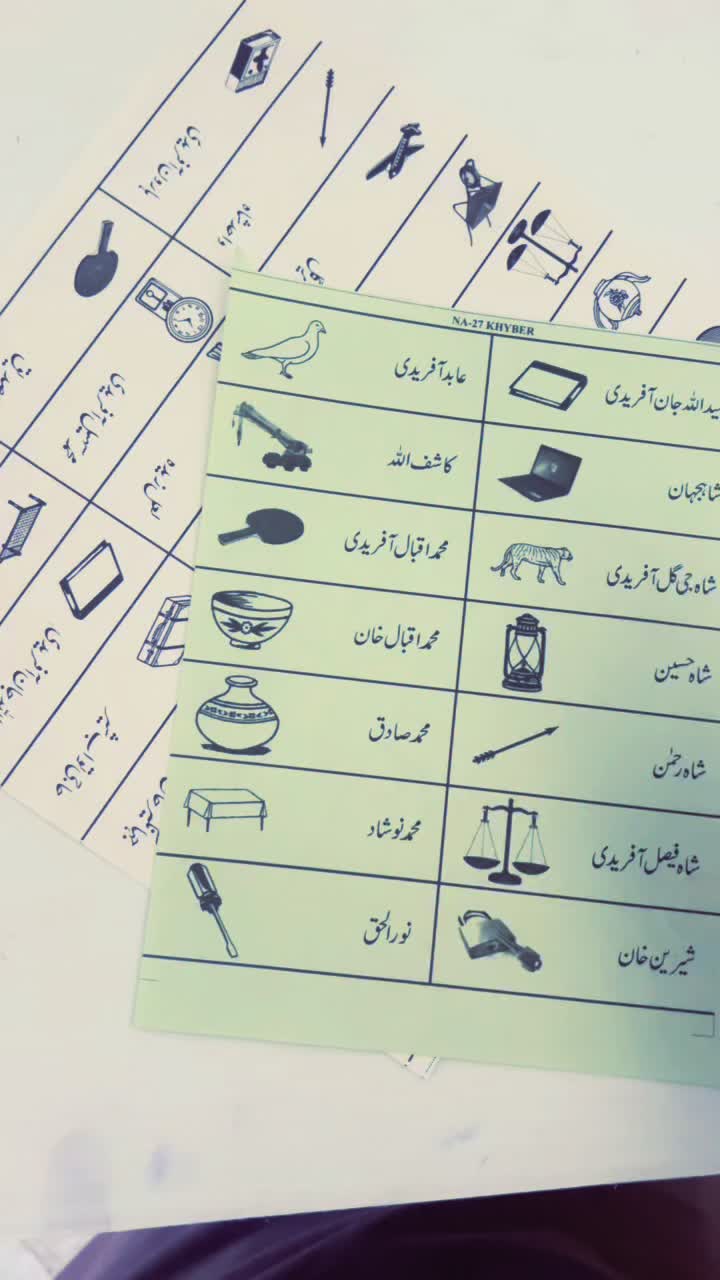 NA-27 KHYBER
اللہ جان آفریدی
عابد آفریدی
شاہجہان
کاشف اللہ
شاہ جی گل آفریدی
محمد اقبال آفریدی
شاہ حسین
محمد اقبال خان
شاہ رحمٰن
محمد صادق
شاہ فیصل آفریدی
محمد نوشاد
شیرین خان
نور الحق
ہارون آفریدی
واحد شاہ